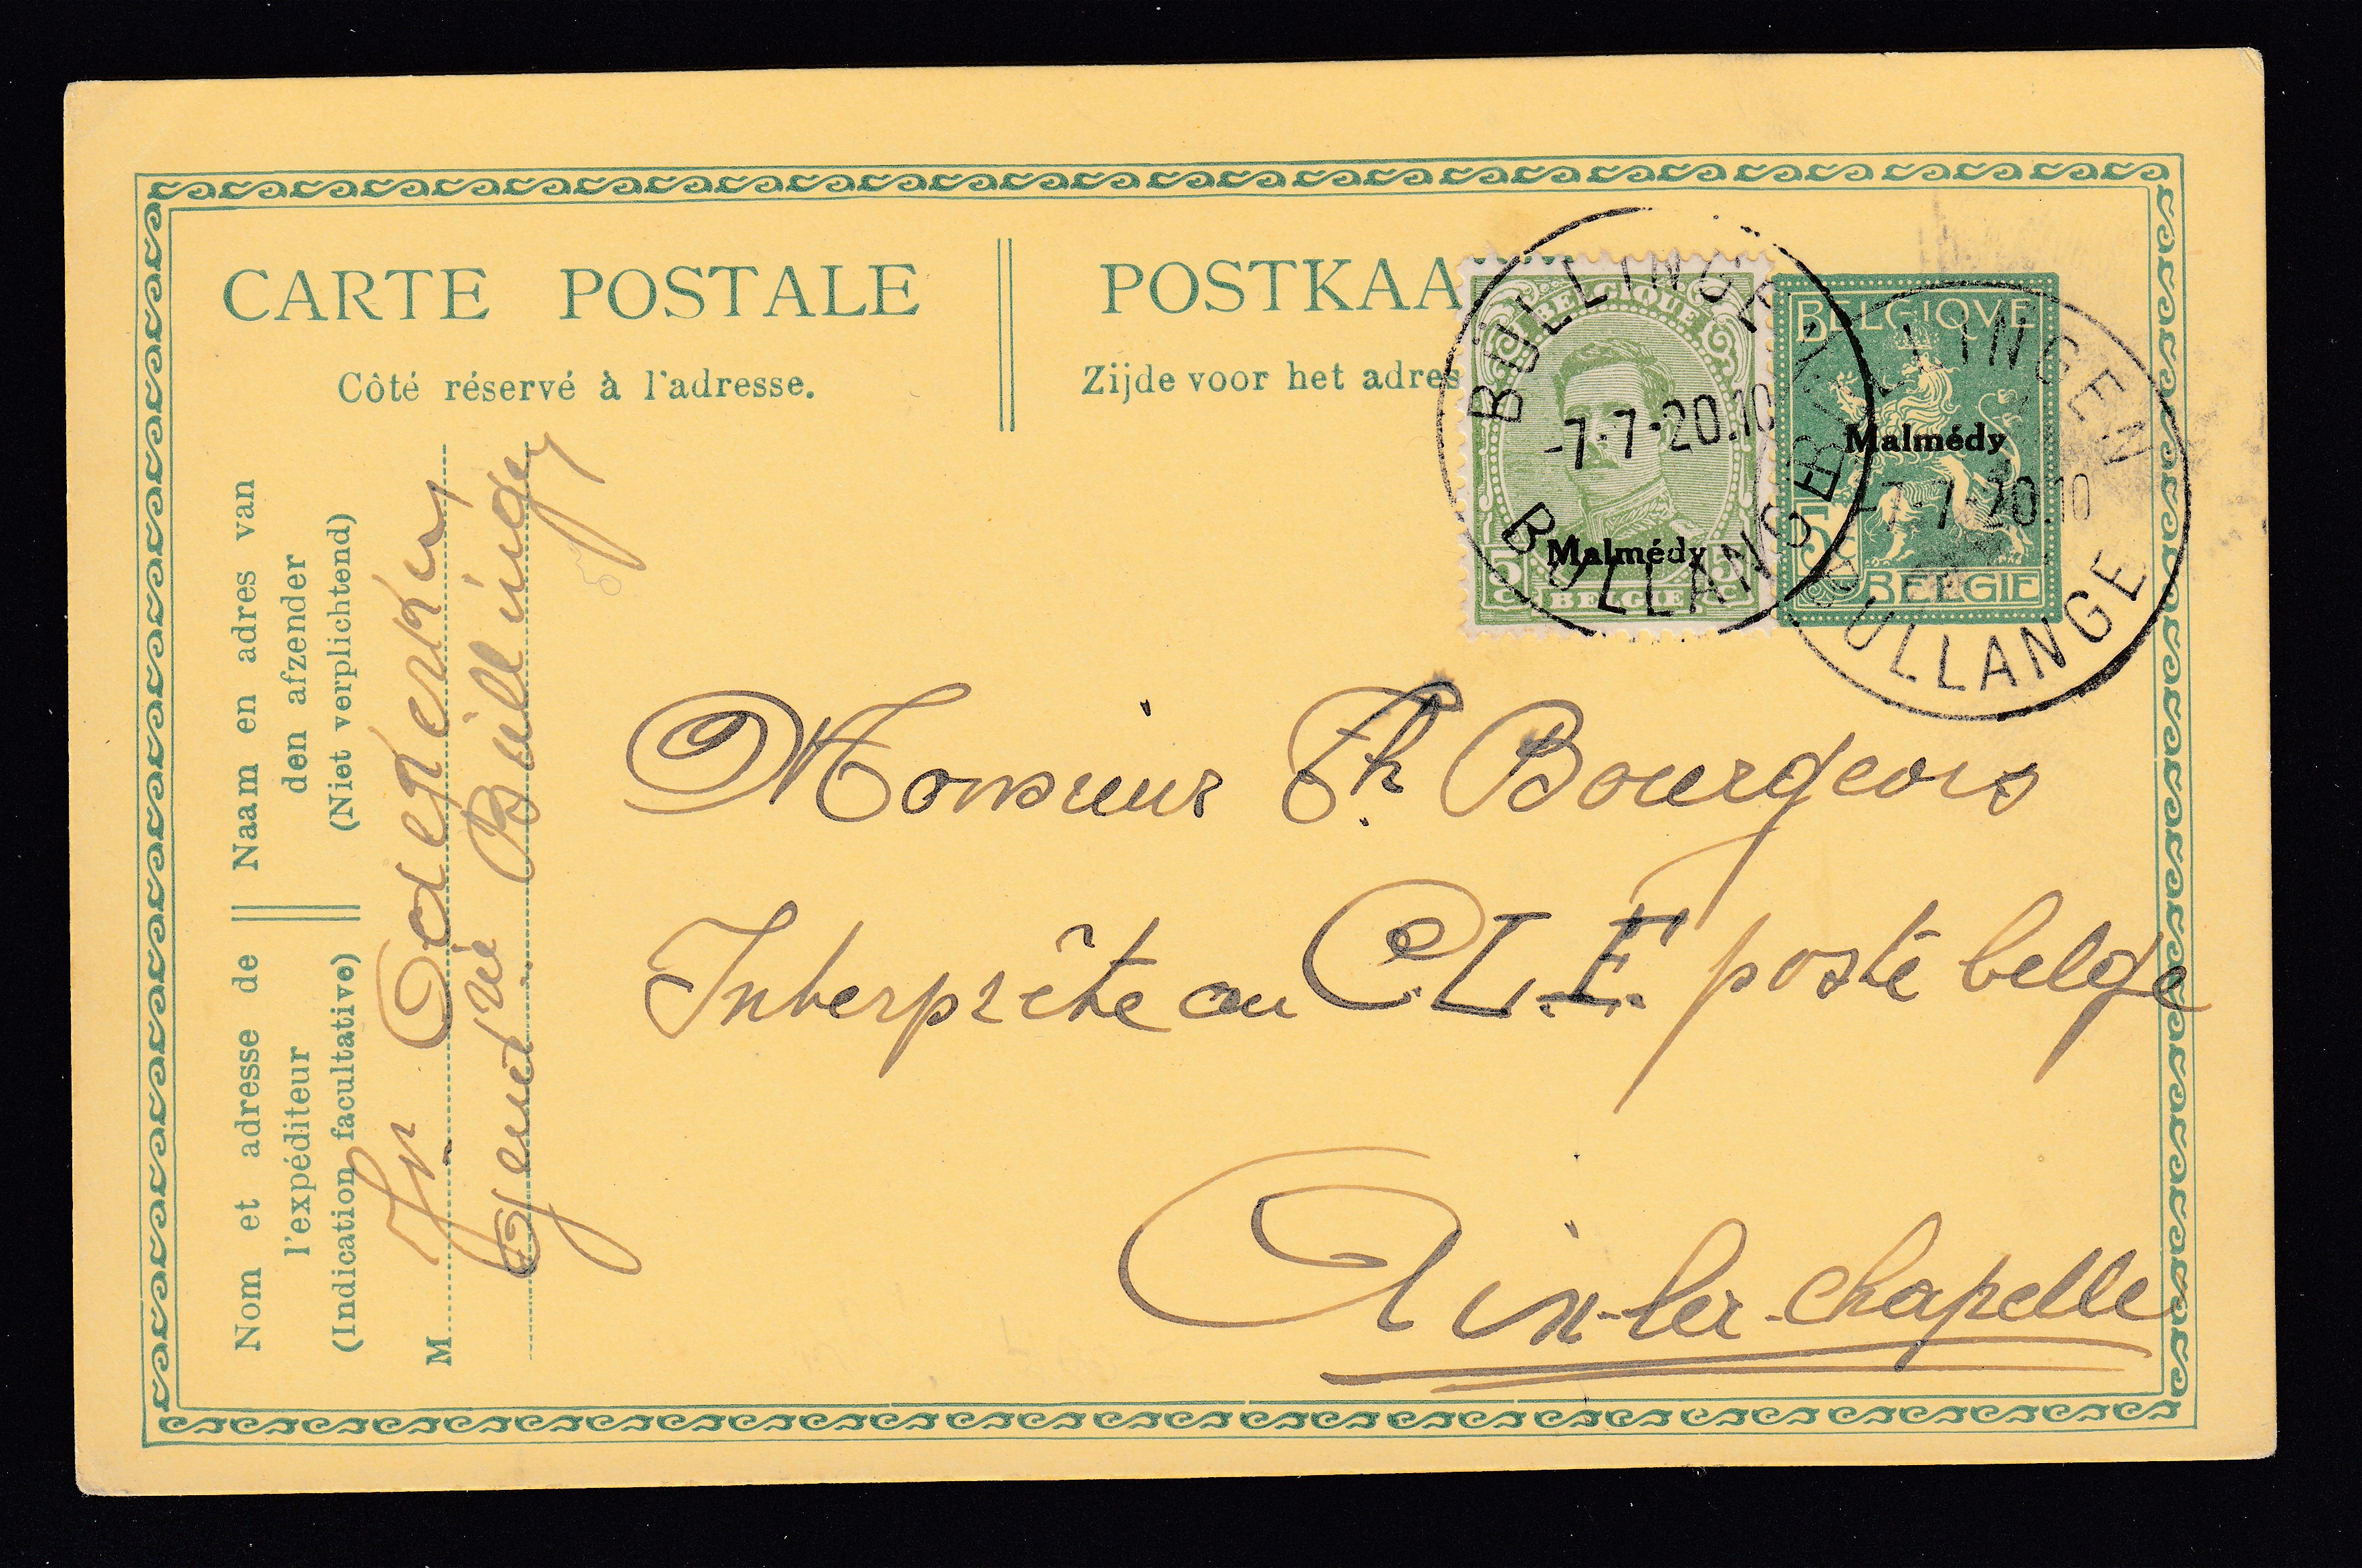 CARTE POSTALE
Côté réservé à l'adresse.
POSTKAA
Zijde voor het adres
BELGIQUE
5c 5c
BELGIË
Malmédy
BÜLLINGEN
-7-7-20.10
BULLANGE
BELGIQVE
5c
BELGIE
Malmédy
BÜLLINGEN
-7-7-20.10
BULLANGE
Naam en adres van
den afzender
(Niet verplichtend)
Nom et adresse de
l'expéditeur
(Indication facultative)
M
Büllingen
Monsieur Th. Bourgeois
Interprète au C.L.F. poste belge
Aix-la-chapelle